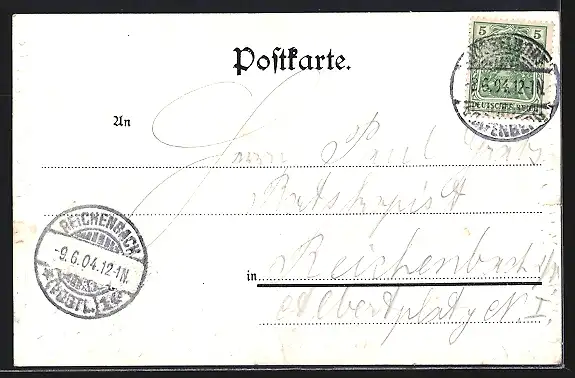 Postkarte.
5 5
DEUTSCHES REICH
9.6.04.12-1N.
An
Herrn Paul
Ratskopist
REICHENBACH
-9.6.04.12-1N.
(VOGTL.)
in Reichenbach i/V.
Albertplatz N. I